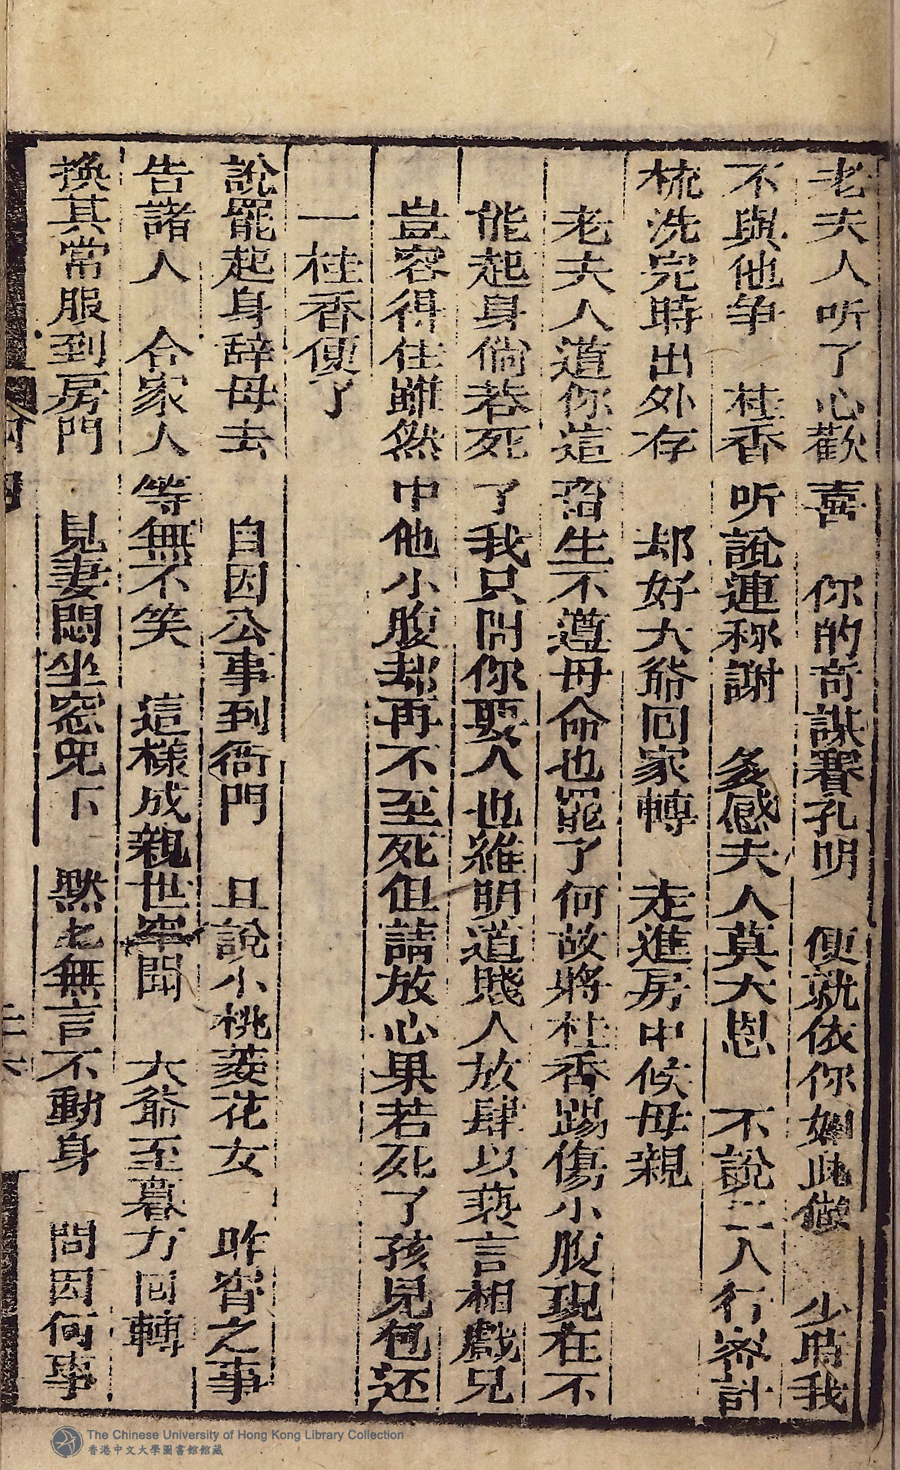 老夫人听了心歡喜　你的奇謀賽孔明　便就依你如此做　少時我
不與他爭　桂香听說連称謝　多感夫人莫大恩　不說二人行密計
梳洗完時出外存　却好大爺囘家轉　走進房中候母親
老夫人道你這畜生不遵母命也罷了何故將桂香踢傷小腹現在不
能起身倘若死了我只問你要人也維明道賤人放肆以䙝言相戲兒
豈容得住雖然中他小腹却再不至死但請放心果若死了孩兒包还
一桂香便了
說罷起身辞母去　自因公事到衙門　且說小桃菱花女　昨宵之事
告諸人　合家人等無不笑　這樣成親世罕聞　大爺至暮方囘轉
換其常服到房門　見妻悶坐窓児下　黙黙無言不動身　問因何事
二六
The Chinese University of Hong Kong Library Collection
香港中文大學圖書館館藏